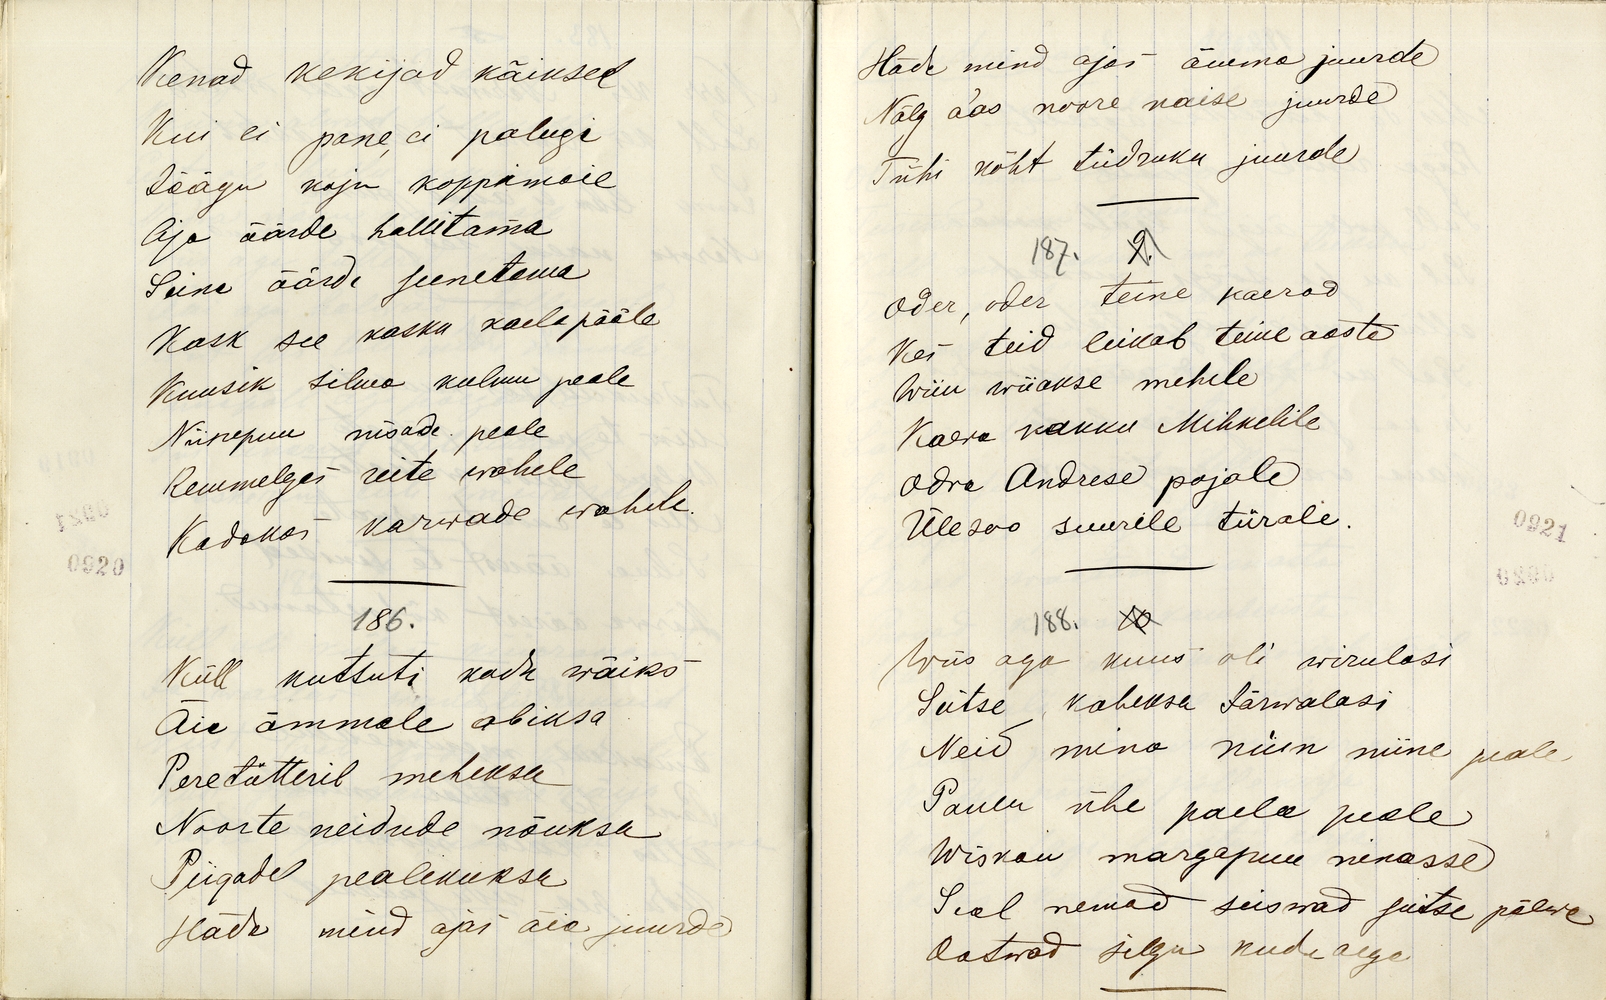 Kenad kekijad käiksed
Kui ei pane, ei palugi
Söögu koju koppamaie
Aja äärde hallitama
Seina äärde seenetama
Kask see kasku kaela pääle
Kuusik silma kulmu peale
Niinepuu nisade peale
Remmelgas reite wahele
Kadakas karwade wahele.
186.
Küll kuttsuti kodu wäiks
Äia ämmale abiksa
Peretütteril meheksa
Noorte neidude nõuksa
Piigadel pealikuksa
Häda mind ajas äia juurde
0920
Häda mind ajas ämma juurde
Nälg a'as noore naise juurde
Tühi kõht tüdruku juurde
187. 9.
Oder, oder teine kaerad
Kes teid leikab teine aasta
Wiin wiiakse mehele
Kaera kakku Mihkelile
Odra Andrese pojale
Ülesoo suurele türale.
188. 10
Wiis aga kuus oli wirulasi
Seitse, kaheksa Järwalasi
Neid mina niin niine peale
Panen ühe paela peale
Wiskan margapuu ninasse
Seal nemad seiswad seitse päewa
Ootwad silgu kudu aega
0921